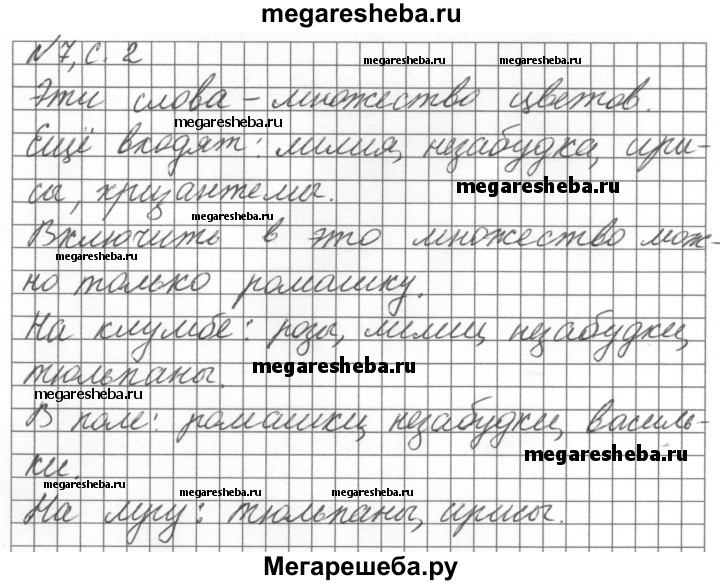 megaresheba.ru
N7, с. 2
megaresheba.ru megaresheba.ru
Эти слова – множество цветов.
megaresheba.ru
Ещё входят: лилия, незабудка, ири-
megaresheba.ru
сы, хризантемы.
megaresheba.ru
Включить в это множество мож-
megaresheba.ru
но только ромашку.
На клумбе: розы, лилии, незабудки,
megaresheba.ru
тюльпаны.
megaresheba.ru
В поле: ромашки, незабудки, василь-
megaresheba.ru
ки.
megaresheba.ru megaresheba.ru megaresheba.ru
На лугу: тюльпаны, ирисы.
Мегарешеба.ру